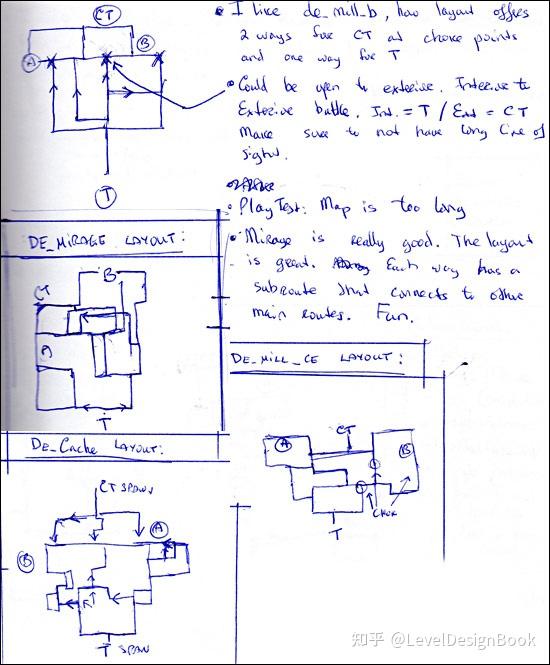 CT
B
A
T
• I like de_mill_b, how layout offers
2 ways for CT at choke points
and one way for T
• Could be open to exterior. Interior to
Exterior battle. Int. = T / Ext = CT
Make sure to not have long line of
sight.
• PlayTest: Map is too long
• Mirage is really good. The layout
is great. Each way has a
subroute that connects to other
main routes. Fun.
DE_MIRAGE LAYOUT:
B
CT
A
T
DE_MILL_CE LAYOUT:
A
CT
B
CHOK
T
DE_Cache LAYOUT:
CT SPAWN
A
B
T SPAWN
知乎 @LevelDesignBook